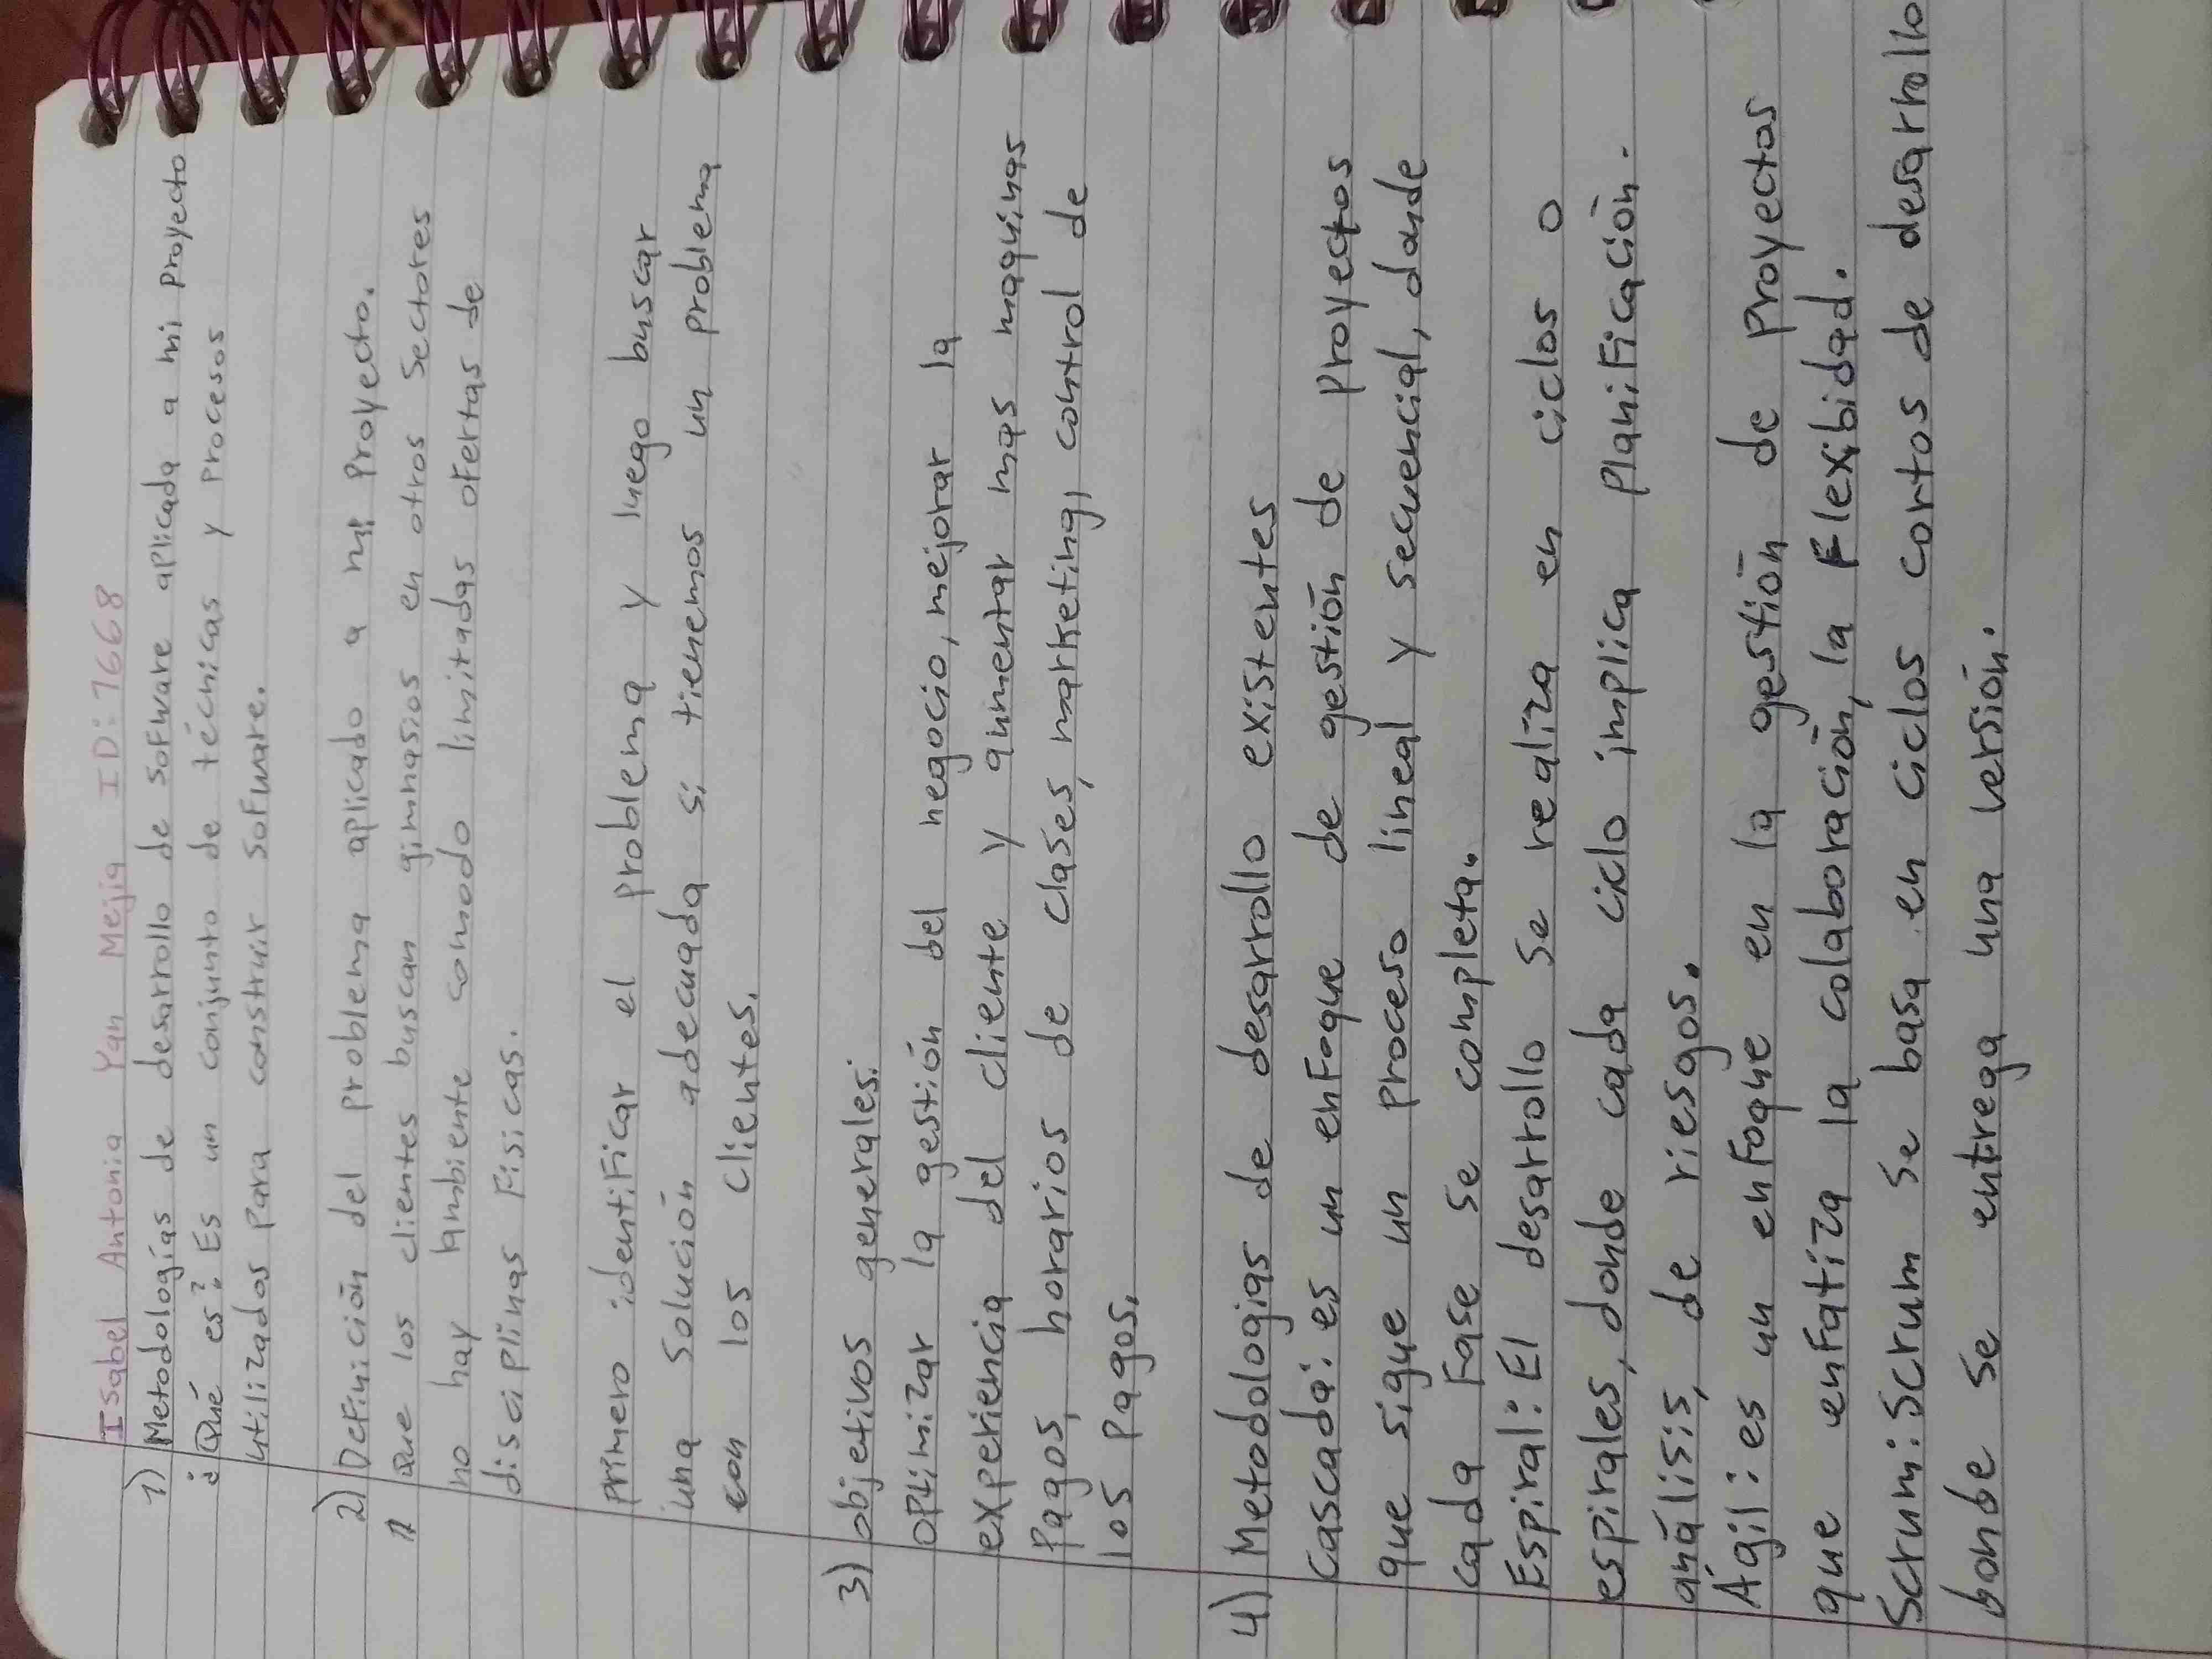 Isabel Antonia Yan Mejia ID:7668
1) Metodologías de desarrollo de sofware aplicada a mi proyecto
¿Qué es? Es un conjunto de técnicas y procesos
utilizados para construir sofware.
2) Definición del problema aplicado a mi proyecto.
Que los clientes buscan gimnasios en otros sectores
no hay ambiente comodo limitadas ofertas de
disciplinas fisicas.
primero identificar el problema y luego buscar
una solución adecuada si tienemos un problema
con los clientes.
3) objetivos generales:
optimizar la gestión del negocio, mejorar la
experiencia del cliente y aumentar mas maquinas
Pagos, horarios de clases, marketing, control de
los pagos.
4) Metodologias de desarrollo existentes
cascada: es un enfoque de gestión de proyectos
que sigue un proceso lineal y secuencial, donde
cada fase se completa.
Espiral: El desarrollo se realiza en ciclos o
espirales, donde cada ciclo implica planificación.
análisis, de riesgos.
Ágil: es un enfoque en la gestión de proyectos
que enfatiza la colaboración, la Flexibidad.
Scrum: Scrum se basa en ciclos cortos de desarrollo
donde se entrega una versión.